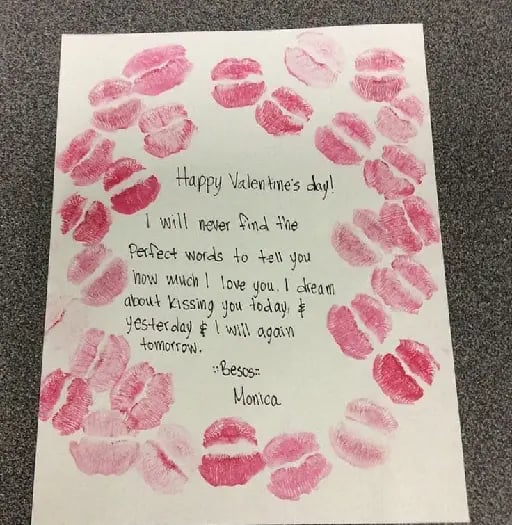 Happy Valentine's day!
I will never find the
Perfect words to tell you
how much I love you. I dream
about kissing you today, &
yesterday & I will again
tomorrow.
::Besos::
Monica